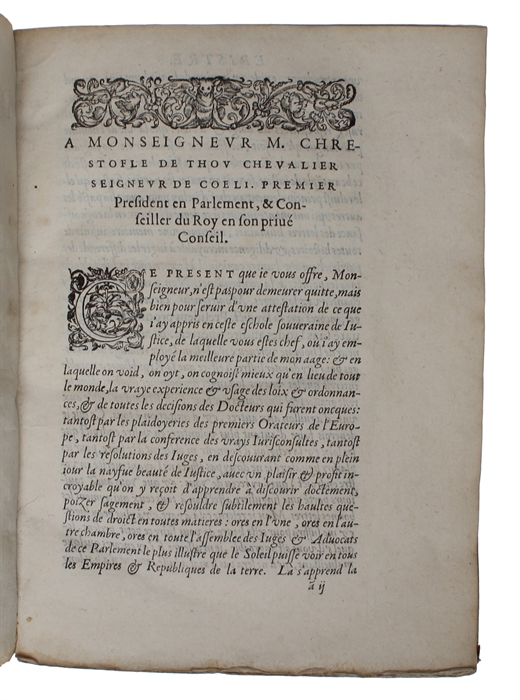 A MONSEIGNEVR M. CHRE-
STOFLE DE THOV CHEVALIER
SEIGNEVR DE COELI. PREMIER
President en Parlement, & Con-
seiller du Roy en son priué
Conseil.
CE PRESENT que ie vous offre, Mon-
seigneur, n'est pas pour demeurer quitte, mais
bien pour seruir d'vne attestation de ce que
i'ay appris en ceste eschole souueraine de Iu-
stice, de laquelle vous estes chef, où i'ay em-
ployé la meilleure partie de mon aage: & en
laquelle on void, on oyt, on cognoist mieux qu'en lieu de tout
le monde, la vraye experience & vsage des loix & ordonnan-
ces, & de toutes les decisions des Docteurs qui furent oncques:
tantost par les plaidoyeries des premiers Orateurs de l'Euro-
pe, tantost par la conference des vrays Iurisconsultes, tantost
par les resolutions des Iuges, en descouurant comme en plein
iour la nayfue beauté de Iustice, auec vn plaisir & profit in-
croyable qu'on y reçoit d'apprendre à discourir doctement,
poizer sagement, & resouldre subtilement les haultes que-
stions de droict en toutes matieres: ores en l'vne, ores en l'au-
tre chambre, ores en toute l'assemblee des Iuges & Aduocats
de ce Parlement le plus illustre que le Soleil puisse voir en tous
les Empires & Republiques de la terre. La s'apprend la
ā ij